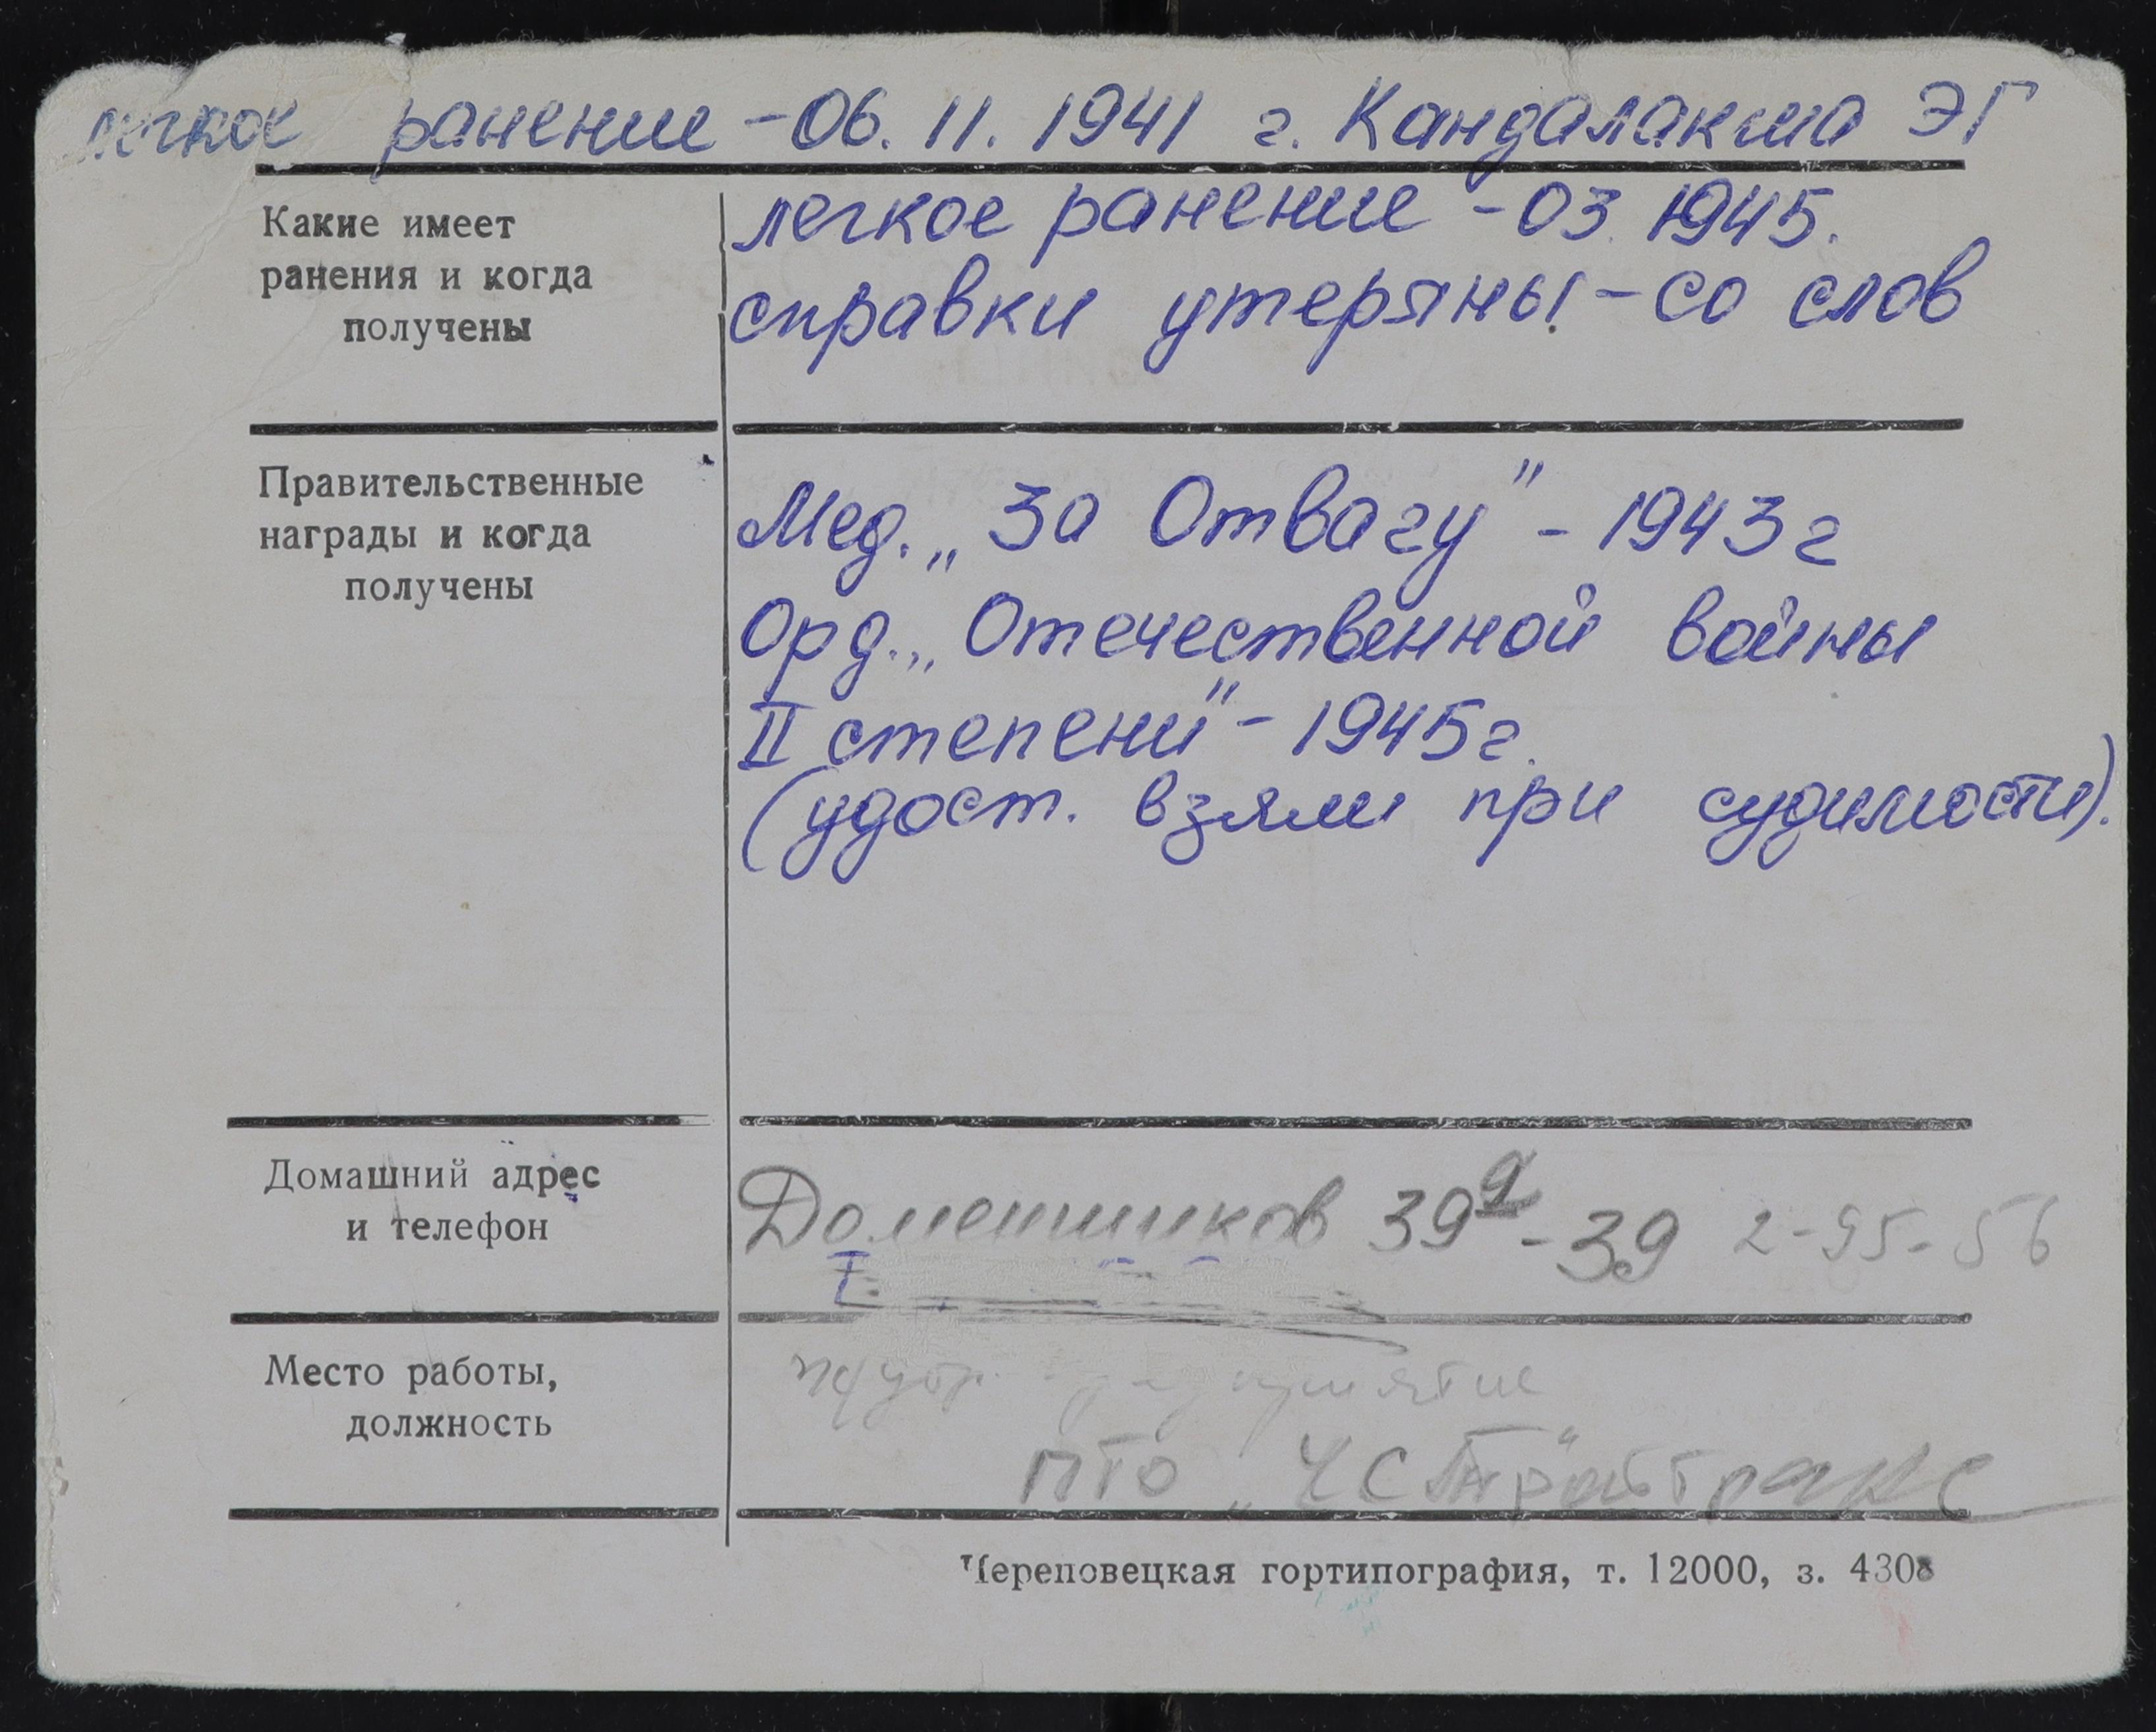 легкое ранение - 06.11.1941 г. Кандалакша ЭГ
Какие имеет
ранения и когда
получены
легкое ранение - 03.1945.
справки утеряны - со слов
Правительственные
награды и когда
получены
Мед. „За Отвагу" - 1943 г
Орд. „Отечественной войны
II степени" - 1945 г.
(удост. взяли при судимости).
Домашний адрес
и телефон
Доменщиков 39а - 39 2-95-56
Место работы,
должность
ПТО
Череповецкая гортипография, т. 12000, з. 4308